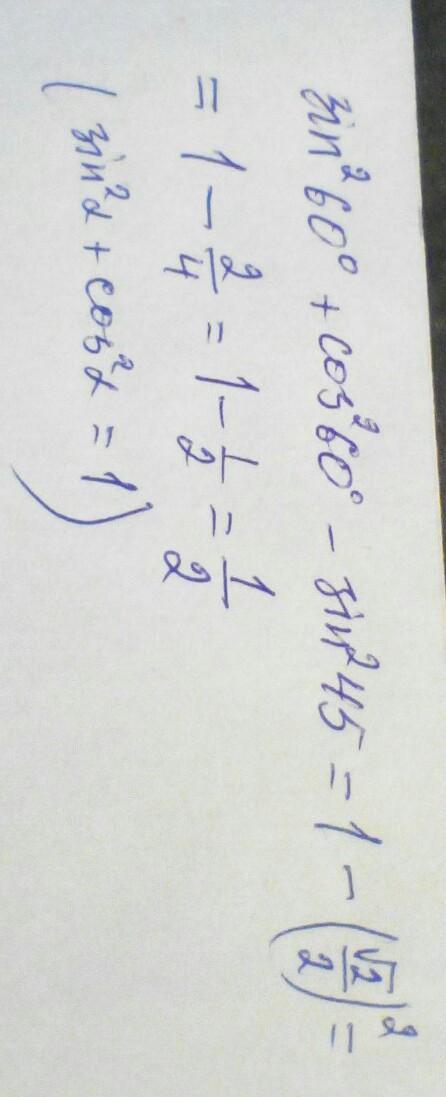 sin²60° + cos²60° − sin²45 = 1 − (√2/2)² =
= 1 − 2/4 = 1 − 1/2 = 1/2
(sin²α + cos²α = 1)